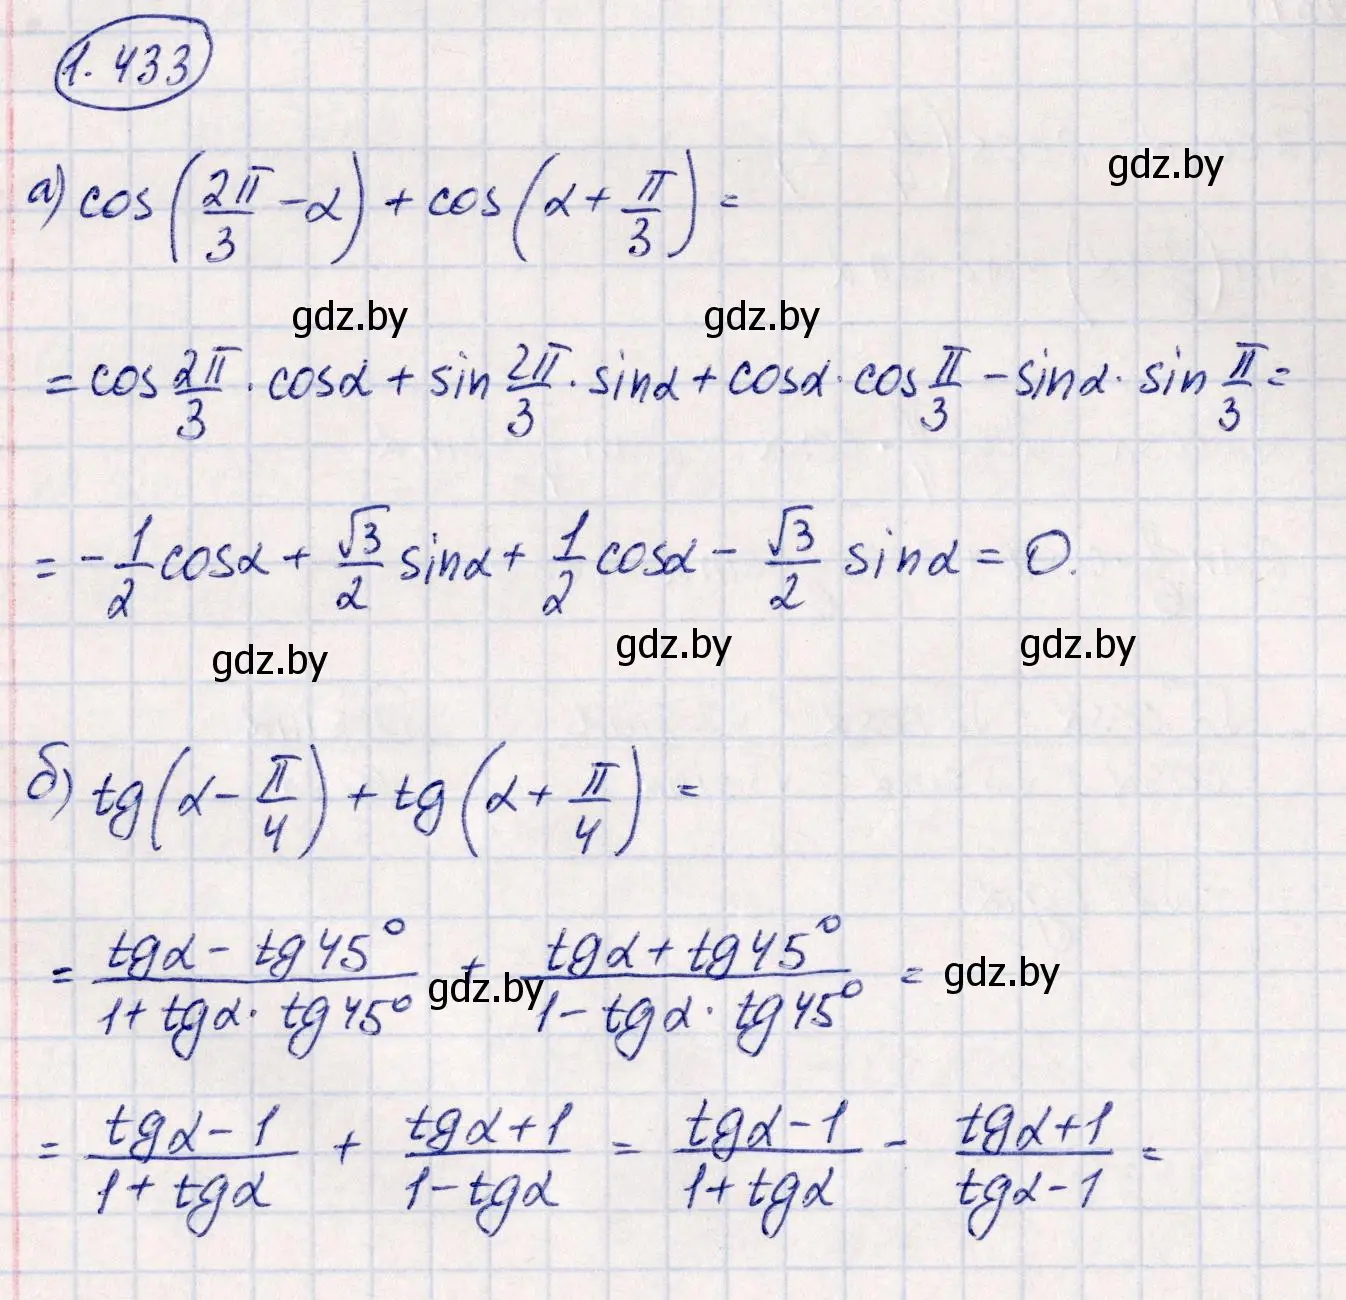 1.433
gdz.by
а) cos(2π/3 - α) + cos(α + π/3) =
gdz.by gdz.by
= cos 2π/3 · cosα + sin 2π/3 · sinα + cosα · cos π/3 - sinα · sin π/3 =
= -1/2 cosα + √3/2 sinα + 1/2 cosα - √3/2 sinα = 0.
gdz.by gdz.by gdz.by
б) tg(α - π/4) + tg(α + π/4) =
= (tgα - tg45°)/(1 + tgα · tg45°) + (tgα + tg45°)/(1 - tgα · tg45°) =
gdz.by gdz.by
= (tgα - 1)/(1 + tgα) + (tgα + 1)/(1 - tgα) = (tgα - 1)/(1 + tgα) - (tgα + 1)/(tgα - 1) =